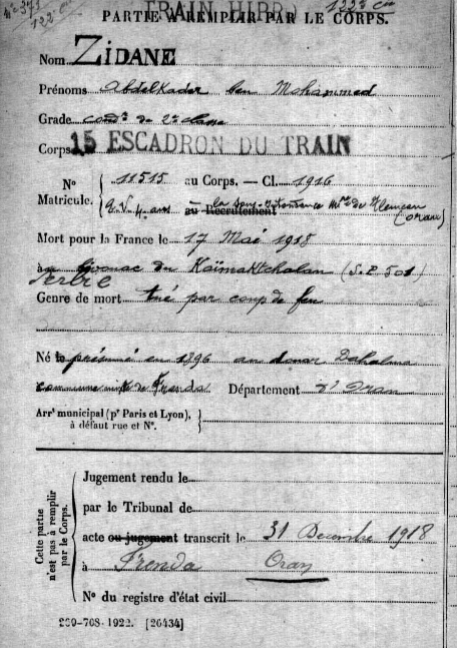 TRAIN HIPP.
122e Cie
122e Cie
PARTIE A REMPLIR PAR LE CORPS.
Nom ZIDANE
Prénoms Abdelkader ben Mohammed
Grade condr de 2e classe
Corps 15 ESCADRON DU TRAIN
No Matricule.
11515 au Corps. — Cl. 1916
E.V. 4 ans au Recrutement la sous-Intendance Mre de Tlemcen (Oran)
Mort pour la France le 17 Mai 1918
au bivouac du Kaïmaktchalan (S.P. 501)
Serbie
Genre de mort tué par coup de feu
Né le présumé en 1896 au douar Dahalma
commune mixte de Frenda Département d'Oran
Arrt municipal (pr Paris et Lyon),
à défaut rue et No.
Cette partie
n'est pas à remplir
par le Corps.
Jugement rendu le
par le Tribunal de
acte ou jugement transcrit le 31 Decembre 1918
à Frenda Oran
No du registre d'état civil
269-708-1922. [26434]